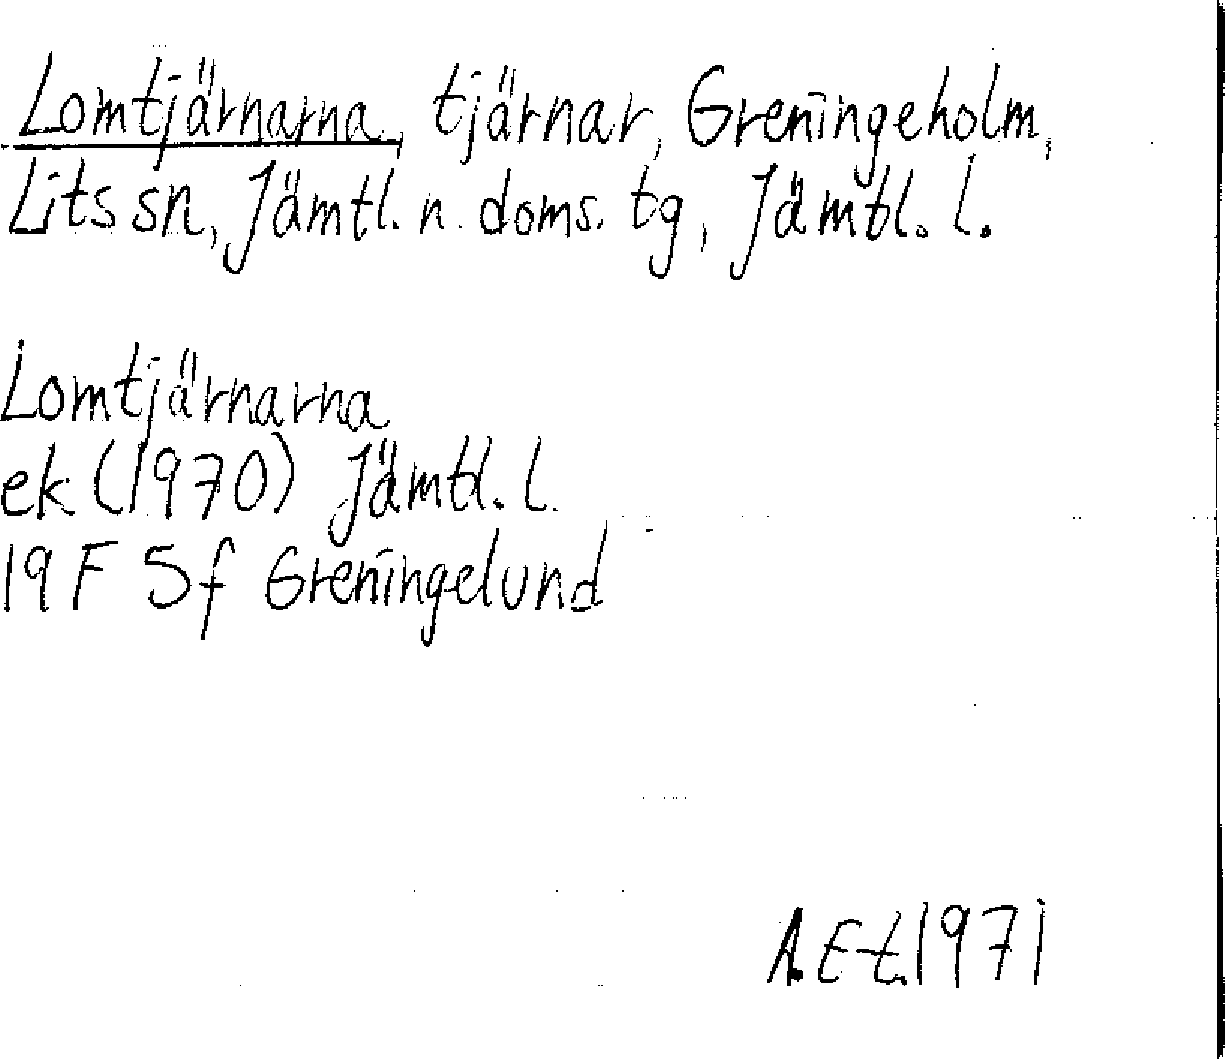 Lomtjärnarna, tjärnar, Greningeholm,
Lits sn, Jämtl. n. doms. tg, Jämtl. l.
Lomtjärnarna
ek (1970) Jämtl. l.
19 F 5f Greningelund
A. E-t. 1971